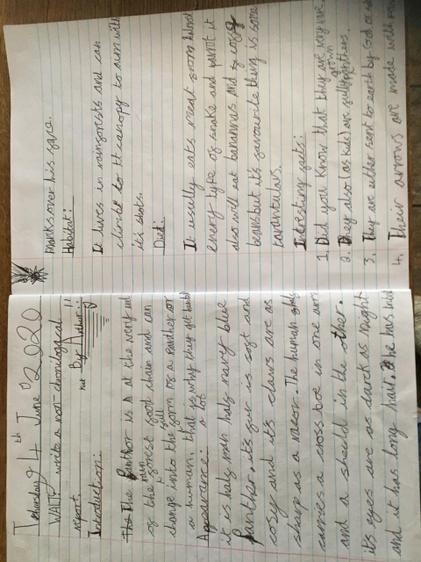 Thursday 4th June 2020
WALT: write a non-chronological
report. By Arthur
Introduction:
The Panther is at the very
of the forest food chain and can
change into the form of a panther or
a human, that is why they get
Appearance:
it is half man half navy blue
panther. it's fur is soft and
cosy and it's claws are as
sharp as a razor. The human
carries a cross boe in one arm
and a sheild in the other.
it's eyes are as darck as night
and it has long hair. he has
marks over his face.
Habitat:
It lives in rainforests and can
climb to th canopy to sum
it's
Diet:
It usually eats meat from
every type of snake and parrot it
also will eat banannas and
beans but it's favourite thing is some
tarantulas.
Intresting facts:
1. Did you know that they are very
2. They also (as kids) are
3. They are either sent to earth by God or
4. Their arrows are made with